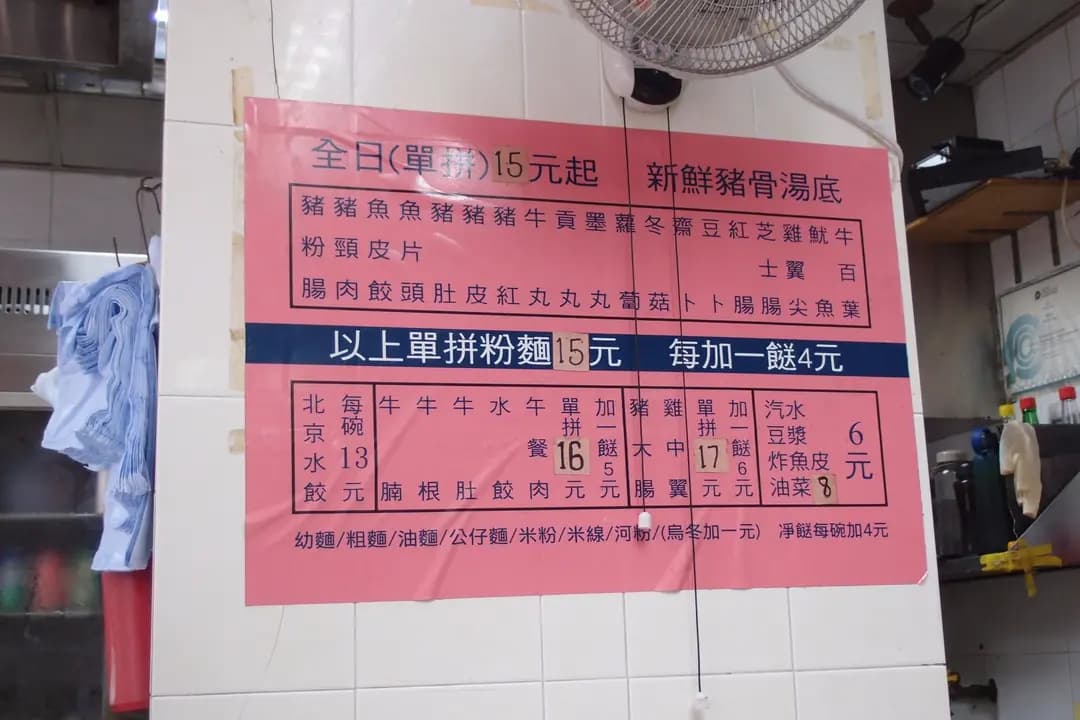 全日(單拼)15元起
新鮮豬骨湯底
豬粉腸
豬頸肉
魚皮餃
魚片頭
豬肚
豬皮
豬紅
牛丸
貢丸
墨丸
蘿蔔
冬菇
齋卜
豆卜
紅腸
芝士腸
雞翼尖
魷魚
牛百葉
以上單拼粉麵15元 每加一餸4元
北京水餃
每碗13元
牛腩
牛根
牛肚
水餃
午餐肉
單拼16元
加一餸5元
豬大腸
雞中翼
單拼17元
加一餸6元
汽水
豆漿
炸魚皮
油菜8
6元
幼麵/粗麵/油麵/公仔麵/米粉/米線/河粉/(烏冬加一元) 淨餸每碗加4元